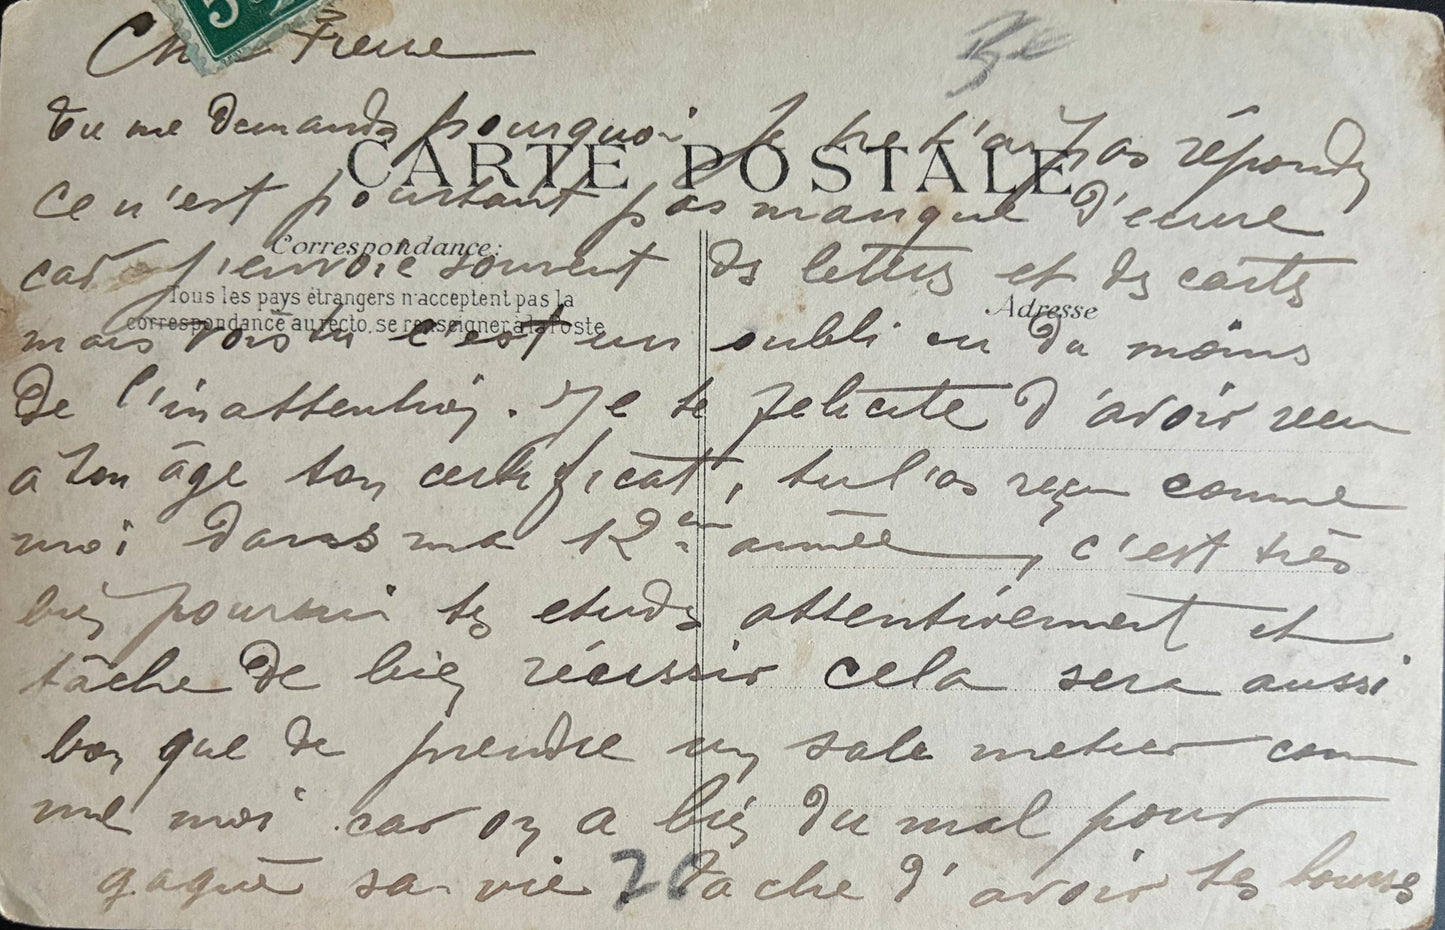 5
Cher Frere
Be
tu me demandes pourquoi Je ne t'ai pas répondu
CARTE POSTALE
ce n'est pourtant pas manque d'ecrire
Correspondance:
car j'envoie souvent des lettres et des cartes
Tous les pays étrangers n'acceptent pas la
Adresse
correspondance au recto, se renseigner à la Poste
mais vois tu c'est un oubli ou du moins
de l'inattention. Je te felicite d'avoir recu
a ton âge ton certificat, tu l'as reçu comme
moi dans ma 12eme année, c'est très
bien poursui tes etudes attentivement et
tâche de bien réeussir cela sera aussi
bon que de prendre un sale metier com
me moi car on a bien du mal pour
gagné sa vie 20 tache d'avoir tes bourses